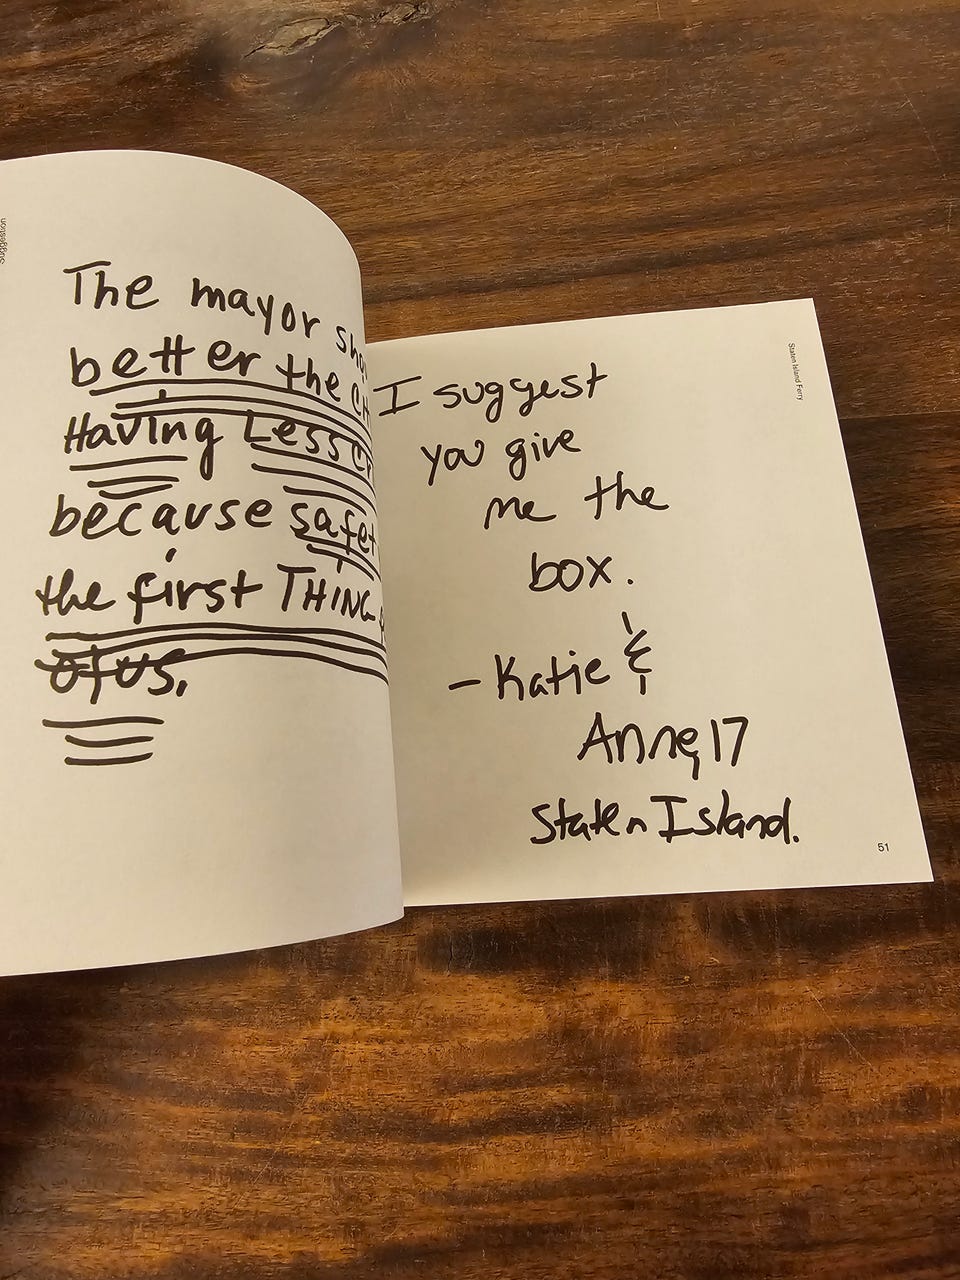 Suggestion
The mayor
better the
Having Less
because
the first THING
of us.
Staten Island Ferry
I suggest
you give
me the
box.
- Katie &
Anne, 17
Staten Island.
51